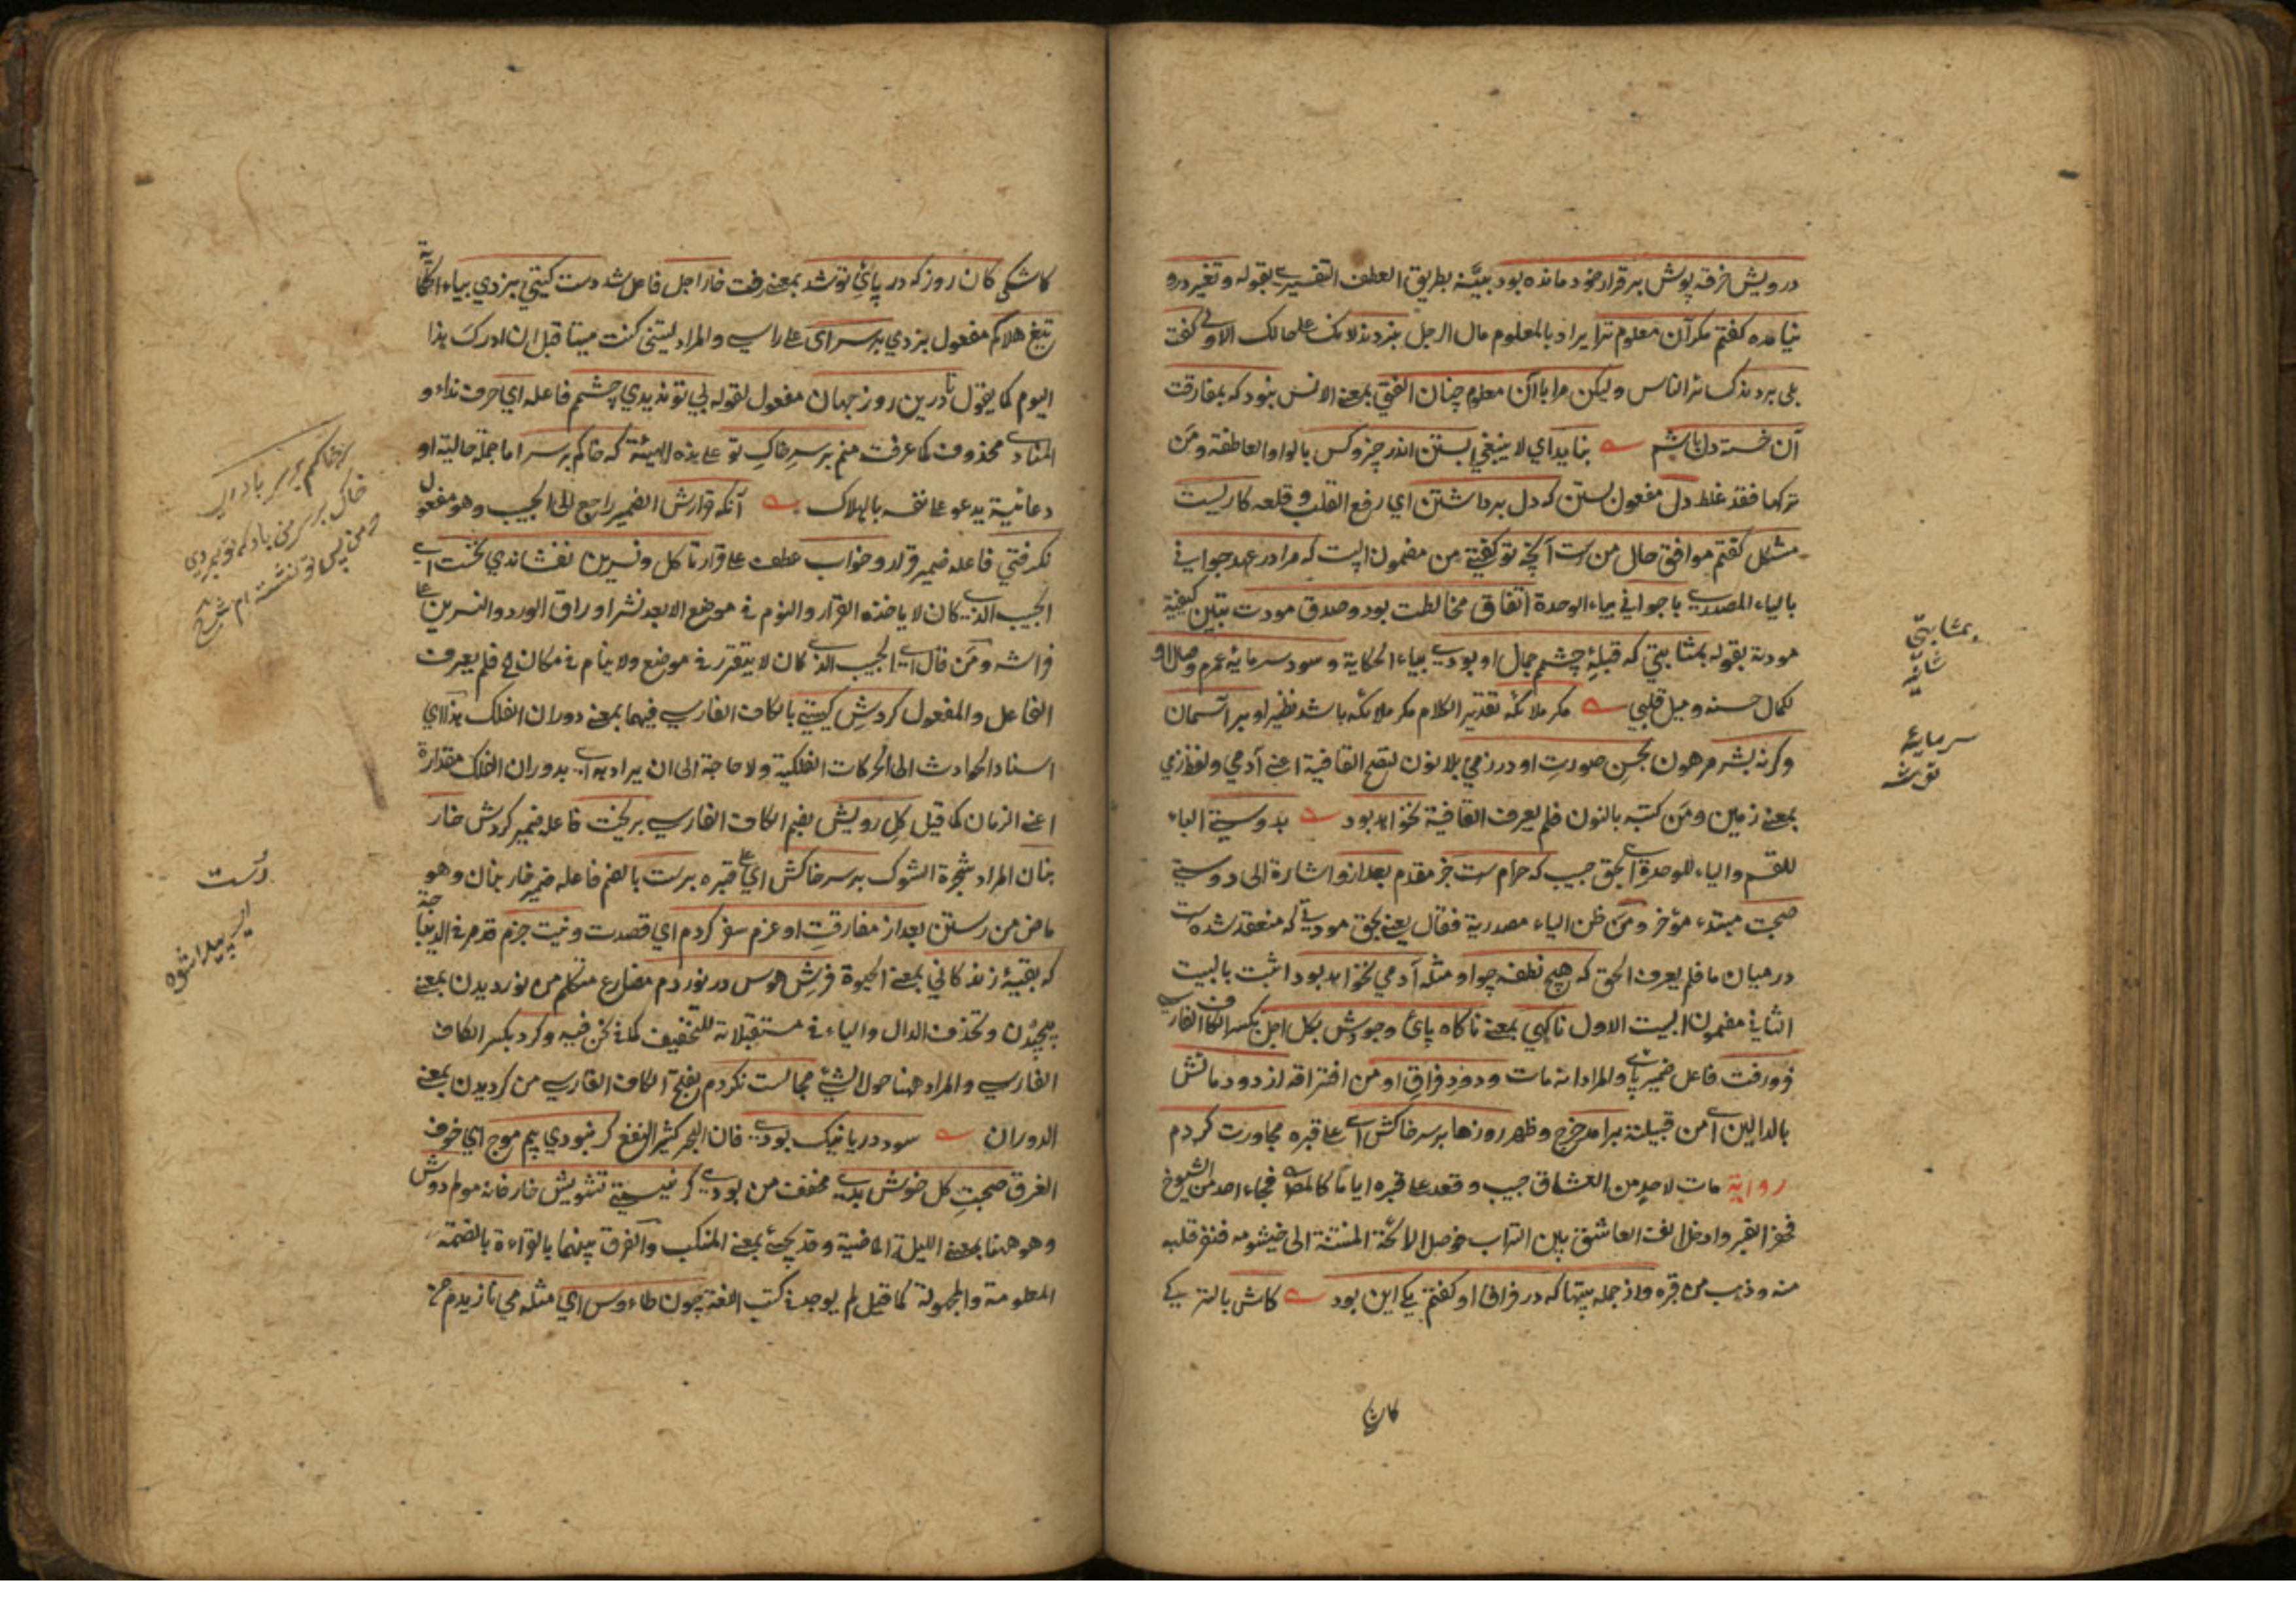 درويش خرقه پوش برقرار خود مانده بود بيّنه بطريق العطف التفسيرے بقوله وتغير درو
نيامده كفتم مكر آن معلوم ترا يراد بالمعلوم مال الرجل ببردند لامك علے حالك الاولے كفت
بلى بردند ك سرّ الناس وليكن مرا باآن معلوم چنان الفتي بمعنے الانس نبود كه بمفارقت
آن خسته دل باشم نبايد اي لا ينبغي بستن اندر چيز وكس بالواو العاطفة ومَن
تركها فقد غلط دل مفعول بستن كه دل برداشتن اي رفع القلب وقلعه كاريست
مشكل كفتم موافق حال من ست آنچه تو كفتي من مضمون اينست كه مرا در عهد جوانے
بالياء المصدرے با جوانے بياء الوحدة اتفاق مخالطت بود وصدق مودت بتبيين كيفية
مودته بقوله بمثابتي كه قبلهٔ چشم جمال او بودے بياء الحكاية وسود سرمايهٔ عمرم وصال او
لكمال حسنه وميل قلبي مكر ملائكه تقدير الكلام مكر ملائكه باشد نظير او بر آسمان
وكرنه بشر مرهون بحسن صورتِ او در زمي بلا نون لتصح القافية اعنے آدمي ولفظ زمي
بمعنے زمين ومَن كتبه بالنون فلم يعرف القافية نخواهد بود بدوستے الباء
للقسم والياء للوحدة اے بحق حبيب كه حرام ست خبر مقدم بعد ازو اشارة الى دوستے
صحبت مبتدء مؤخر ومَن ظن الياء مصدرية فقال يعنے بحق مودتے كه منعقد شده ست
در ميان ما فلم يعرف الحق كه هيچ نطفه چو او مثله آدمي نخواهد بود اثبت بالبيت
الثانے مضمون البيت الاول ناكهي بمعنے ناكاه پائ وجودش بكل اجل بكسر الكاف الفارسے
فرو رفت فاعل ضمير پاے والمراد انه مات ودود فراقِ او من افتراقه از دودمانش
بالدالين اے من قبيلته برامد خرج وظهر روزها بر سر خاكش اے علے قبره مجاورت كردم
رواية مات لاحدٍ من العشاق حبيب وقعد علے قبره اياما فجاء احد من الشيوخ
فحفر القبر وادخل انف العاشق بين التراب فوصل الرائحة المنتنة الى خيشومه فنفر قلبه
منه وذهب من قبره واز جمله بيتها كه در فراق او كفتم يكے اين بود كاش بالتركے
كان
بمثابتي
سرمايهٔ
كاشكي كان روز كه در پائِ تو شد بمعنے رفت خار اجل فاعل شد دست كيتي بزدي بياء الحكاية
تيغ هلاكم مفعول بزدي بر سر اي علے راسي والمراد ليتنى كنت ميتا قبل ان ادرك هذا
اليوم كما يقول تا درين روز جهان مفعول لقوله بي تو نديدي چشم فاعله اي حرف نداء و
المنادے محذوف كما عرفت منم بر سرِ خاكِ تو علے هذه الهيئة كه خاكم بر سر اما جملة حالية او
دعائية يدعو علے نفسه بالهلاك آنكه قرارش الضمير راجع الى الحبيب وهو مفعول
نكرفتي فاعله ضمير قرار وخواب عطف علے قرار تا كل ونسرين نفشاندي نخست اے
الحبيب الذے كان لا ياخذه القرار والنوم فے موضع الا بعد نشر اوراق الورد والنسرين علے
فراشه ومَن قال اے الحبيب الذے كان لا يتقرر فے موضع ولا ينام فے مكان فلم يعرف
الفاعل والمفعول كردشِ كيتي بالكاف الفارسے فيهما بمعنے دوران الفلك هذا اي
اسناد الحوادث الى الحركات الفلكية ولا حاجة الى ان يراد بدوران الفلك مقداره
اعنے الزمان كما قيل كلِ رويش بضم الكاف الفارسے بريخت فاعله ضمير كردش خار
بنان المراد شجرة الشوك بر سر خاكش اي علے قبره برست بالضم فاعله ضمير خار بنان وهو
ماض من رستن بعد از مفارقتِ او عزم سفر كردم اي قصدت ونيت جزم
كه بقيهٔ زندكاني بمعنے الحيوة فرشِ هوس در نوردم مضارع متكلم من نورديدن بمعنے
پيچيدن وتحذف الدال والياء فے مستقبلاته للتخفيف كما فے نحن فيه وكرد بكسر الكاف
الفارسے والمراد ههنا حول الشئ مجالست نكردم بفتح الكاف الفارسے من كرديدن بمعنے
الدوران سود دريا نيك بودے فان البحر كثير النفع كر نبودي بيم موج اي خوف
الغرق صحبتِ كل خوش بدے مخفف من بودے كر نيستے تشويش خار فانه مولم دوش
وهو ههنا بمعنے الليلة الماضية وقد يجئ بمعنے المنكب والفرق بينهما بالقراءة بالضمة
المعلومة والمجهولة كما قيل لم يوجد فے كتب اللغة چون طاءوس اي مثله مي نازيدم